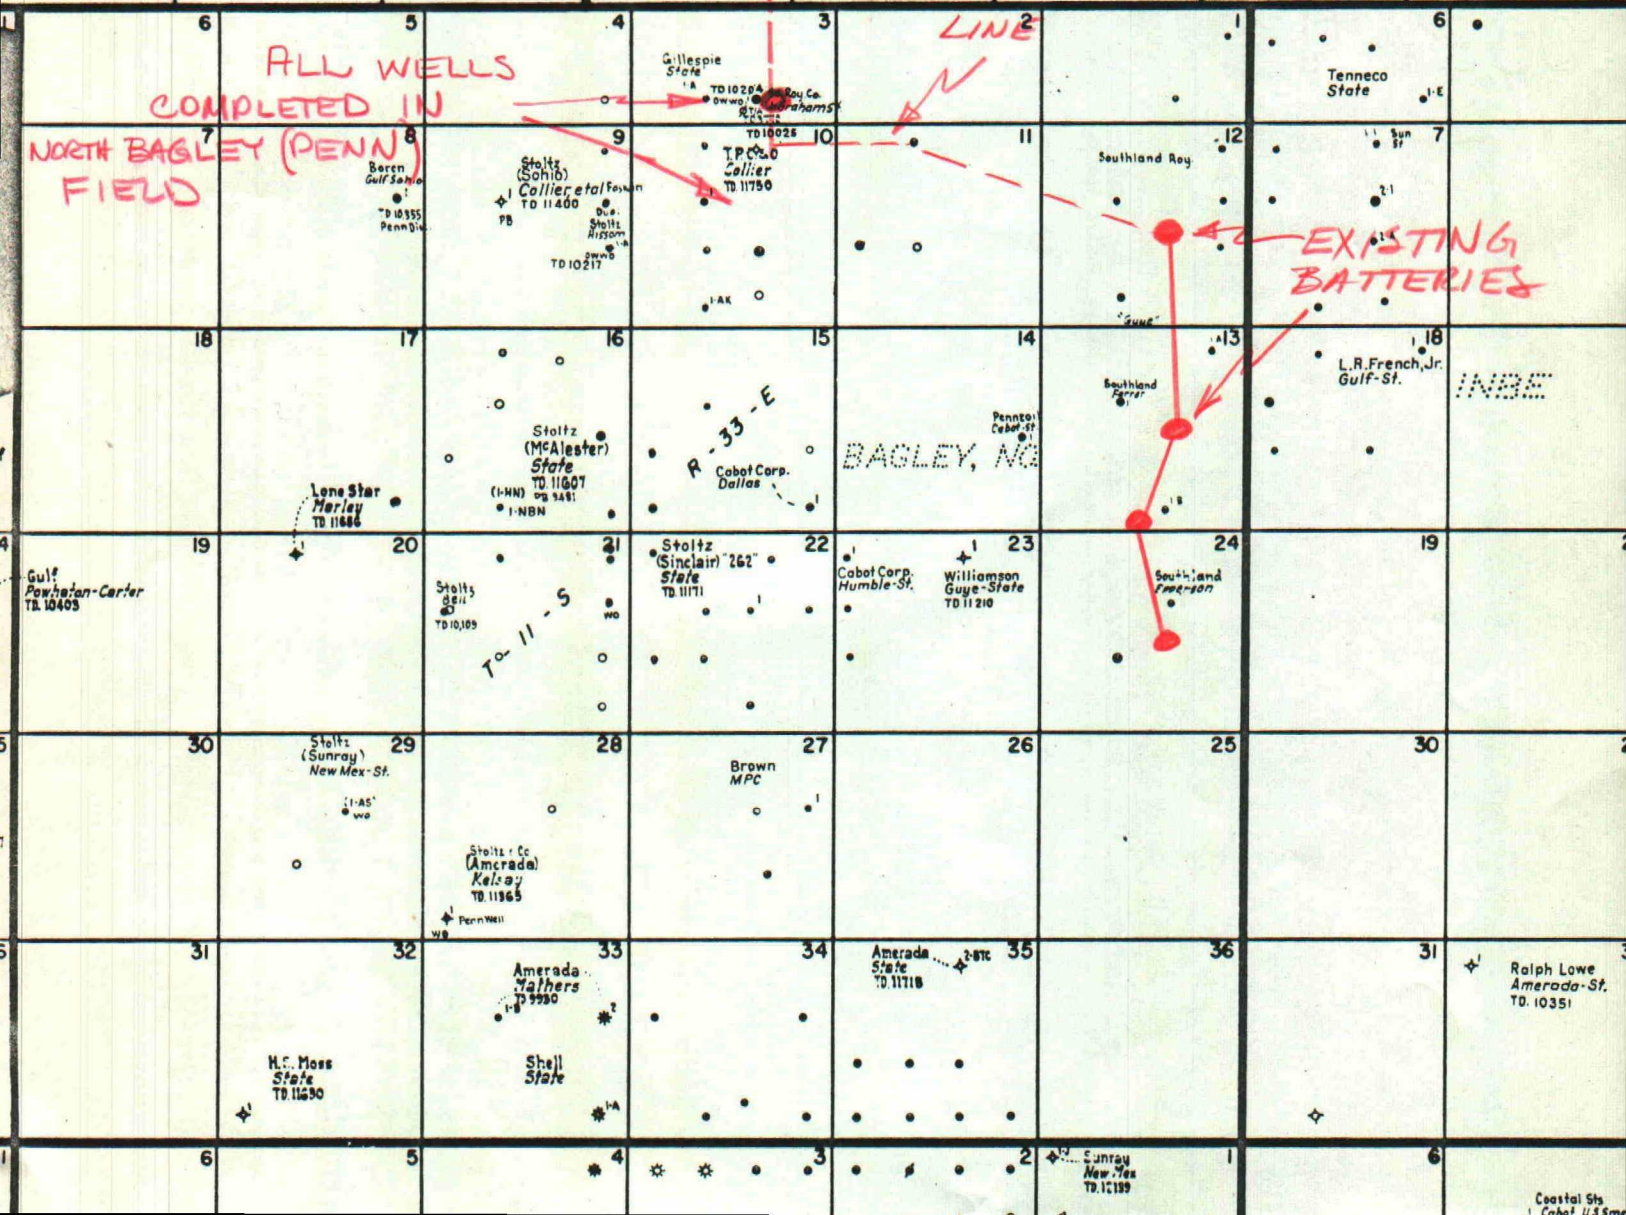 6 5 4 3 2 1 6
LINE
ALL WELLS
COMPLETED IN
NORTH BAGLEY (PENN)
FIELD
Gillespie
State
1-A
TD 10204
OWWO
Roy Co.
TD 10025
Tenneco
State
1-E
7 8 9 10 11 12 7
Sun
St
Boren
Gulf Sohio
1
TD 10,355
Penn Dis.
Stoltz
(Sohio)
Collier, etal
TD 11400
1
PB
Stoltz
Hissom
1-A
OWWO
TD 10217
T.P.C.&O
Collier
TD. 11750
1
1-AK
Southland Roy.
2-1
2-A
EXISTING
BATTERIES
"Guye"
18 17 16 15 14 13 18
1-A
1
L.R. French, Jr.
Gulf-St.
INBE
Southland
Farrar
1
Pennzoil
Cabot-St.
1
R-33-E
BAGLEY, NO
Stoltz
(McAlester)
State
TD. 11607
PB 9481
(1-HN)
1-NBN
Cabot Corp.
Dallas
1
Lone Star
Marley
TD 11686
1-B
19 20 21 22 23 24 19
1
Gulf
Powhatan-Carter
TD. 10403
Stoltz
Bell
TD 10,109
T-11-S
WO
Stoltz
(Sinclair) "262"
State
TD. 11171
1
1
Cabot Corp.
Humble-St.
1
Williamson
Guye-State
TD 11210
Southland
Emerson
30 29 28 27 26 25 30
Stoltz
(Sunray)
New Mex-St.
(1-AS)
WO
Brown
MPC
1
Stoltz & Co
(Amerada)
Kelsay
TD. 11965
1
Penn Well
WO
31 32 33 34 35 36 31
Amerada
Mathers
TD 9980
1-B
2
Amerada
State
TD. 11718
2-BTC
1
Ralph Lowe
Amerada-St.
TD. 10351
H.S. Moss
State
TD. 11690
1
Shell
State
1-A
6 5 4 3 2 1 6
Sunray
New Mex
TD. 12199
Coastal Sts